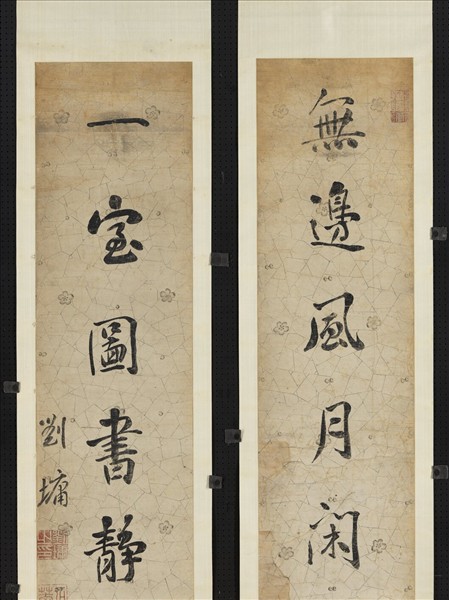 無邊風月閑
一室圖書靜
劉墉